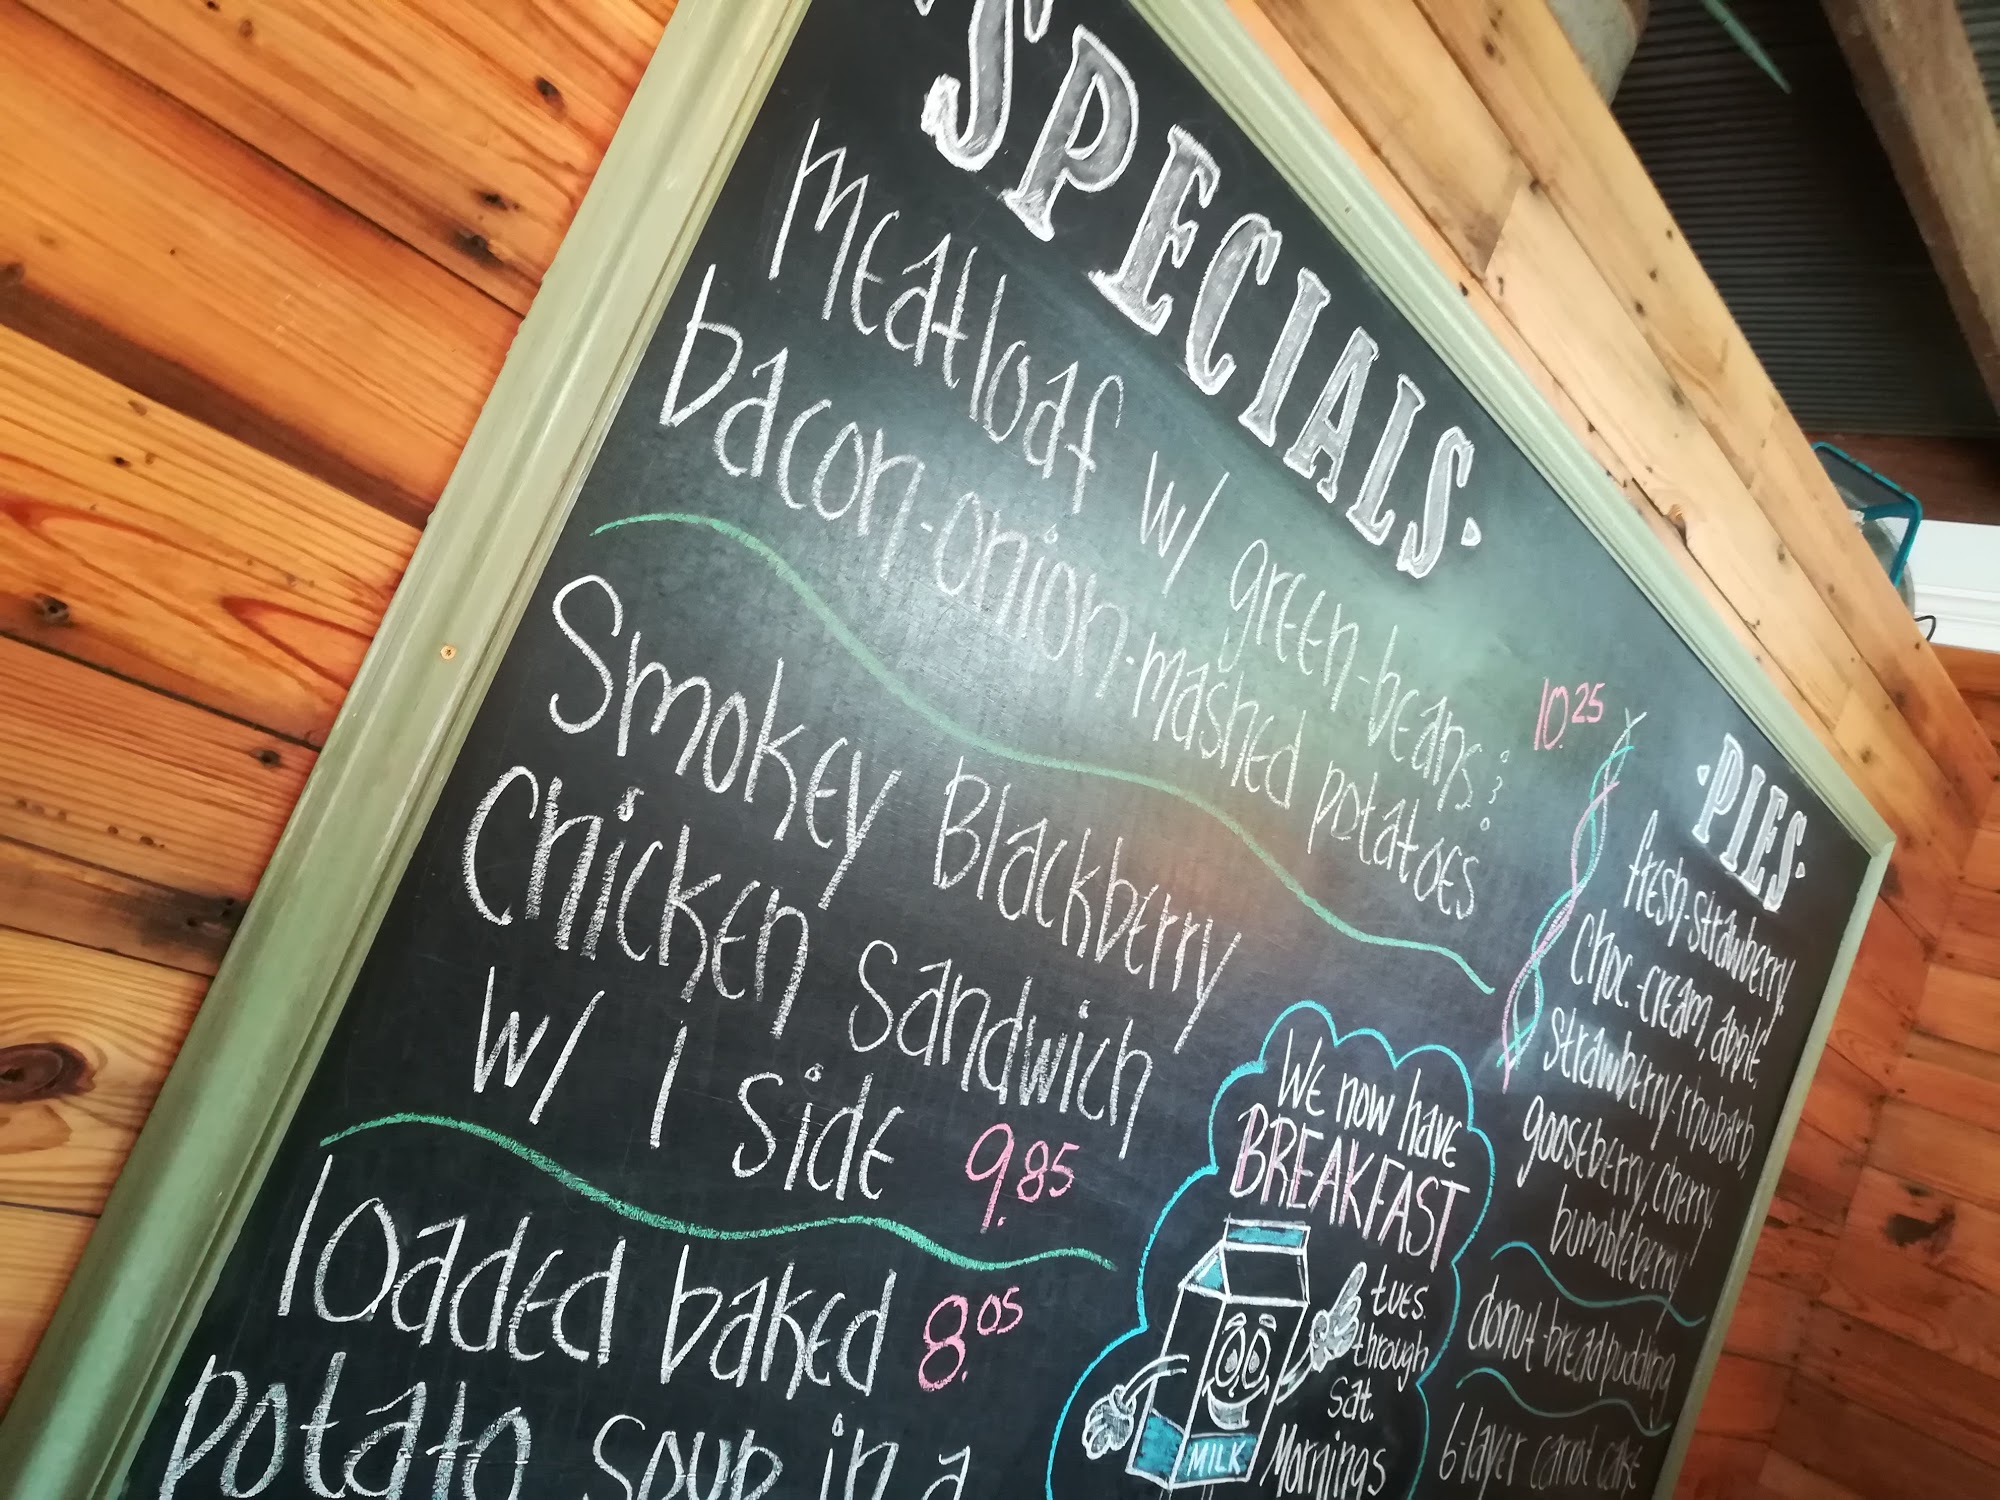 ·SPECIALS·
Meatloaf w/ green-beans &
bacon-onion-mashed potatoes 10.25
Smokey Blackberry
Chicken Sandwich
w/ 1 side 9.85
loaded baked 8.05
potato soup in a
We now have
BREAKFAST
tues.
through
Sat.
Mornings
MILK
·PIES·
fresh-strawberry,
choc.-cream, apple,
strawberry-rhubarb,
gooseberry, cherry,
bumbleberry!
donut-bread pudding
6-layer carrot cake